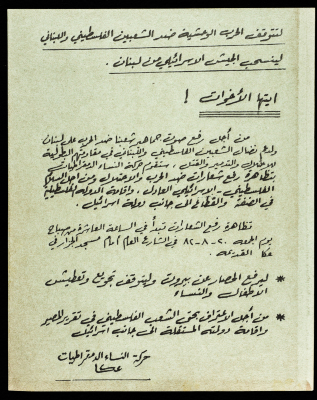 لتتوقف الحرب الوحشية ضد الشعبين الفلسطيني واللبناني
لينسحب الجيش الاسرائيلي من لبنان .
ايتها الأخوات !
من أجل رفع صوت جماهير شعبنا ضد الحرب على لبنان
ولدعم نضال الشعبين الفلسطيني واللبناني في مقاومتهم البطولية
للاحتلال والتدمير والقتل ، ستقوم حركة النساء الديمقراطيات
بتظاهرة رفع شعارات ضد الحرب والاحتلال ومن أجل السلام
الفلسطيني - الاسرائيلي العادل ، واقامة الدولة الفلسطينية
في الضفة والقطاع الى جانب دولة اسرائيل .
تظاهرة رفع الشعارات تبدأ في الساعة العاشرة من صباح
يوم الجمعة ٢٠-٨-٨٢ في الشارع العام أمام مسجد الجزار في
عكا القديمة .
* ليرفع الحصار عن بيروت وليتوقف تجويع وتعطيش
الأطفال والنساء
* من أجل الاعتراف بحق الشعب الفلسطيني في تقرير المصير
واقامة دولته المستقلة الى جانب اسرائيل
حركة النساء الديمقراطيات
عكا